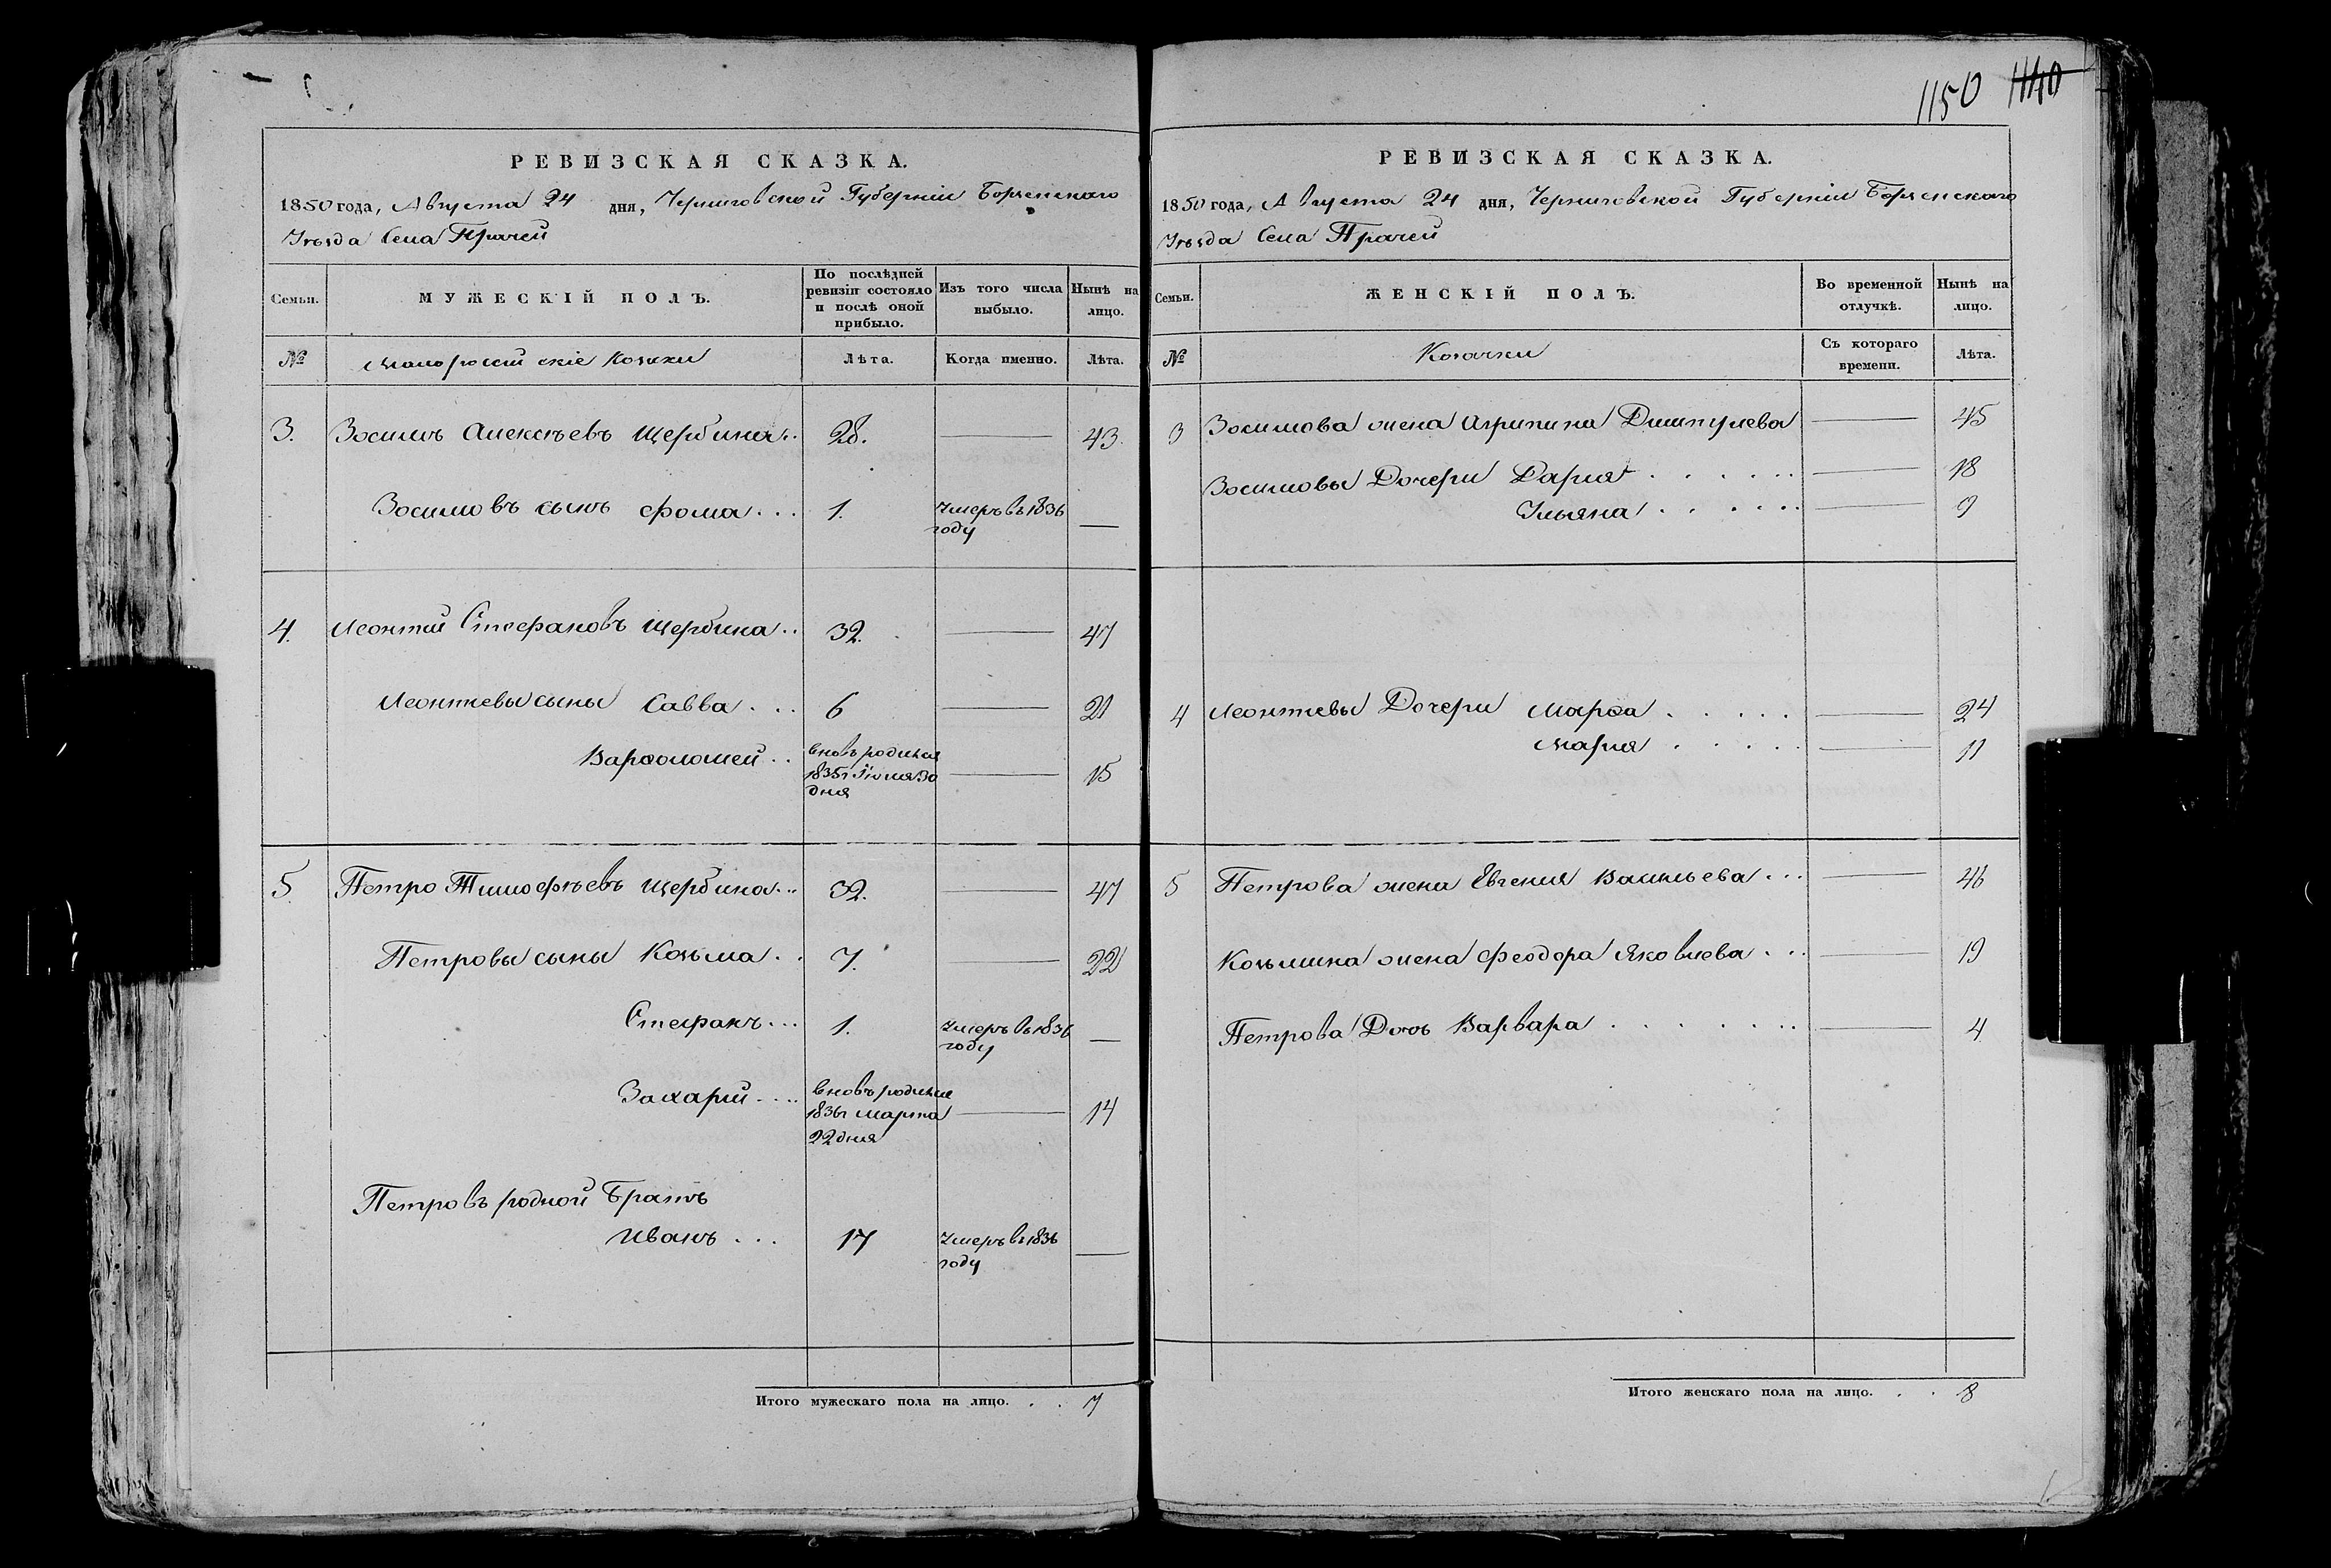 1150 1140
РЕВИЗСКАЯ СКАЗКА.
1850 года, Августа 24 дня, Черниговской Губерніи Борзенскаго
Уѣзда Села Прачей
Семьи.
МУЖЕСКІЙ ПОЛЪ.
По послѣдней ревизіи состояло и послѣ оной прибыло.
Изъ того числа выбыло.
Нынѣ на лицо.
№
Малороссійскіе Козаки
Лѣта.
Когда именно.
Лѣта.
3. Зосимъ Алексѣевъ Щербина.. 28. — 43.
Зосимовъ сынъ Фома... 1. Умеръ въ 1836 году —
4. Леонтій Стефановъ Щербина.. 32. — 47
Леонтіевы сыны Савва... 6 — 21
Варѳоломей.. вновь родился 1835г Іюня 30 дня — 15
5. Петро Тимофѣевъ Щербина... 32. — 47
Петровы сыны Козьма.. 7. — 22
Стефанъ... 1. Умеръ въ 1836 году —
Захарій.... вновь родился 1836г Марта 22 дня — 14
Петровъ родной Братъ
Иванъ... 17 Умеръ въ 1836 году —
Итого мужескаго пола на лицо. . . 7
РЕВИЗСКАЯ СКАЗКА.
1850 года, Августа 24 дня, Черниговской Губерніи Борзенскаго
Уѣзда Села Прачей
Семьи.
ЖЕНСКІЙ ПОЛЪ.
Во временной отлучкѣ.
Нынѣ на лицо.
№
Козачки
Съ котораго времени.
Лѣта.
3 Зосимова жена Агрипина Дмитріева — 45
Зосимовы Дочери Дарія . . . . . — 18
Ульяна . . . . . — 9
4 Леонтіевы Дочери Марѳа . . . . . — 24
Марія . . . . . — 11
5 Петрова жена Евгенія Васильева... — 46
Козьмина жена Феодора Яковлева... — 19
Петрова Дочь Варвара . . . . . . . — 4
Итого женскаго пола на лицо. . . 8